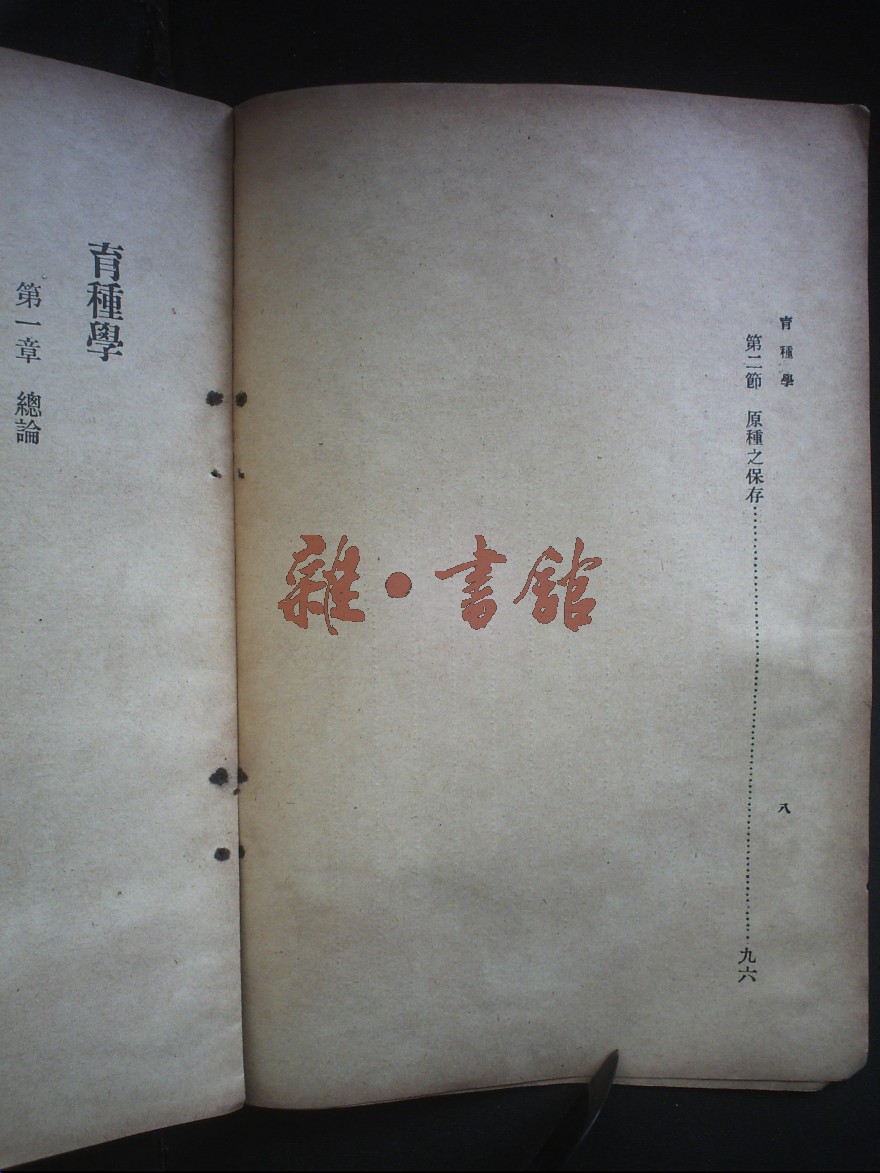 育種學
第二節 原種之保存……九六
八
育種學
第一章 總論
雜·書館